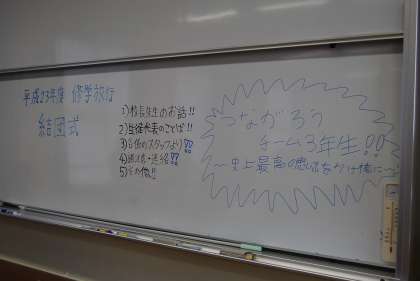 平成23年度 修学旅行
結団式
1)校長先生のお話!!
2)生徒代表のことば!!
3)各係のスタッフより!!
4)諸注意・連絡!!
5)その他!!
つながろう
チーム3年生!!
〜史上最高の思い出を